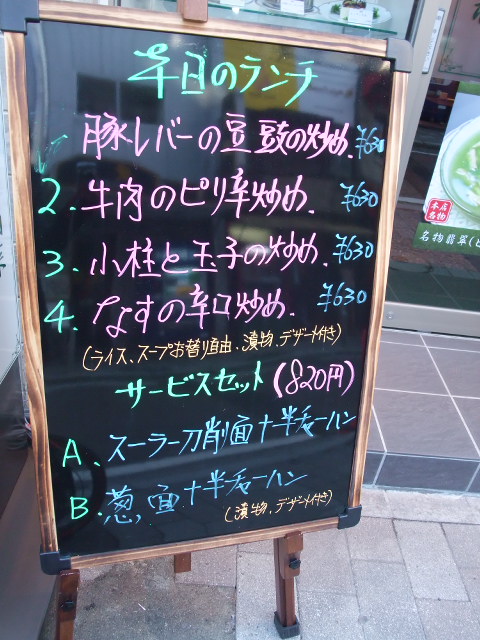 本日のランチ
豚レバーの豆鼓の炒め. ¥630
2. 牛肉のピリ辛炒め. ¥630
3. 小柱と玉子の炒め. ¥630
4. なすの辛口炒め. ¥630
(ライス、スープお替り自由、漬物、デザート付き)
サービスセット(820円)
A、スーラー刀削面+半チャーハン
B. 葱面+半チャーハン
(漬物、デザート付き)
本店
名物
名物翡翠